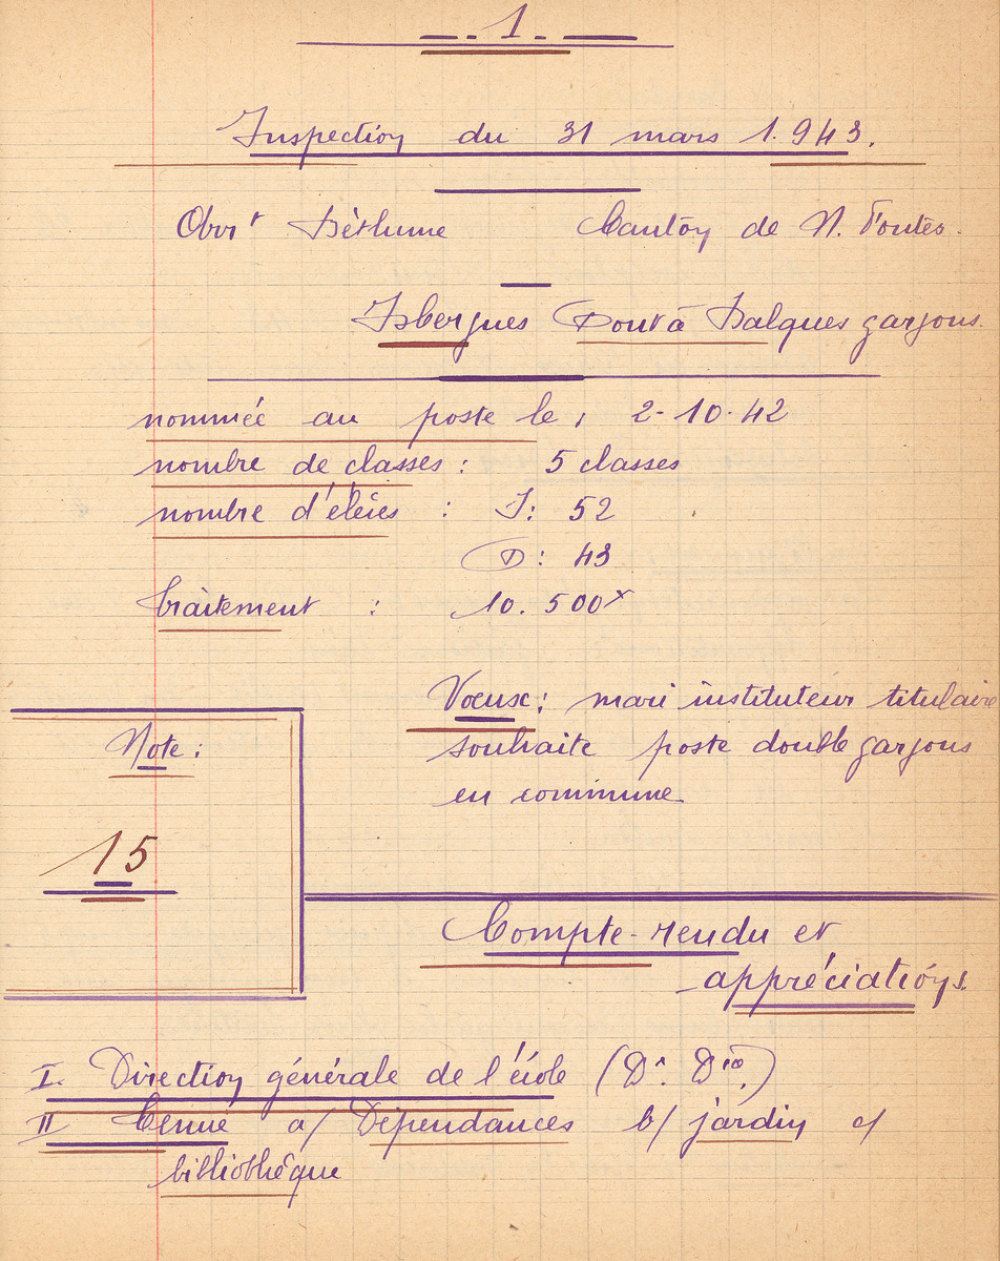 - 1. -
Inspection du 31 mars 1.943.
Arrt Béthune Canton de N. Fontes.
Isbergues Pont à Balques garçons
nommée au poste le : 2-10-42
nombre de classes : 5 classes
nombre d'élèves : I: 52
P: 43
Traitement : 10.500F
Vœux : mari instituteur titulaire
souhaite poste double garçons
en commune
Note :
15
Compte-rendu et
appréciations.
I. Direction générale de l'école (Dr. Dice)
II Tenue a/ Dépendances b/ jardin c/
bibliothèque